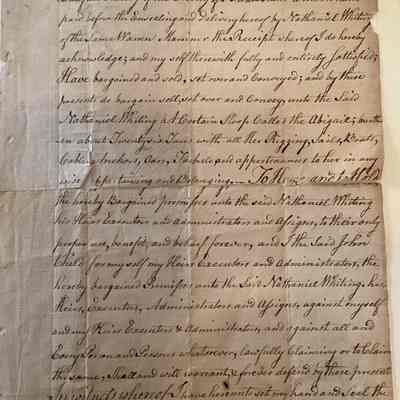 paid before the Ensealing and Delivery hereof by Nathaniel Whiting
of the Same Waren Mariner the Receipt whereof I do hereby
acknowledge; and my self therewith fully and entirely Sattisfied;
Have bargained and sold, set over and Conveyed; and by these
presents do bargain sell, set over and Convey, unto the Said
Nathaniel Whiting A Certain Sloop Called the Abigail;
about Twenty six Tons with all Her Rigging, Sails, Boats,
Cables Anchors, Oars, Tackels and appertinances to her in any
wise appertaining and Belonging, — To Have and to Hold
the hereby Bargained premises unto the said Nathaniel Whiting
his Heirs Executors and Administrators and Assigns, to their only
proper use, benefit, and behalf forever, and I the Said John
Child for my self my Heirs Executors and Administrators, the
hereby bargained Premises unto the Said Nathaniel Whiting, his
Heirs, Executors, Administrators and Assigns, against myself
and my Heirs Executors & Administrators, and against all and
Every Person and Persons whatsoever, lawfully Claiming or to Claim
the same, Shall and will warrant, & forever defend by these presents
In witness whereof I have hereunto set my hand and Seal the